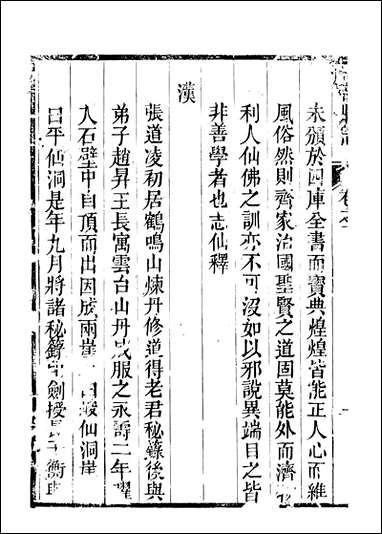 未頒於四庫全書而寶典煌煌皆能正人心而維
風俗然則齊家治國聖賢之道固莫能外而濟
利人仙佛之訓亦不可沒如以邪說異端目之皆
非善學者也志仙釋
漢
張道凌初居鶴鳴山煉丹修道得老君秘籙後與
弟子趙昇王長寓雲台山丹成服之永壽二年躍
入石壁中自頂而出因成兩崖曰峻仙洞崖
曰平仙洞是年九月將諸秘籙寶劍授長子衡與